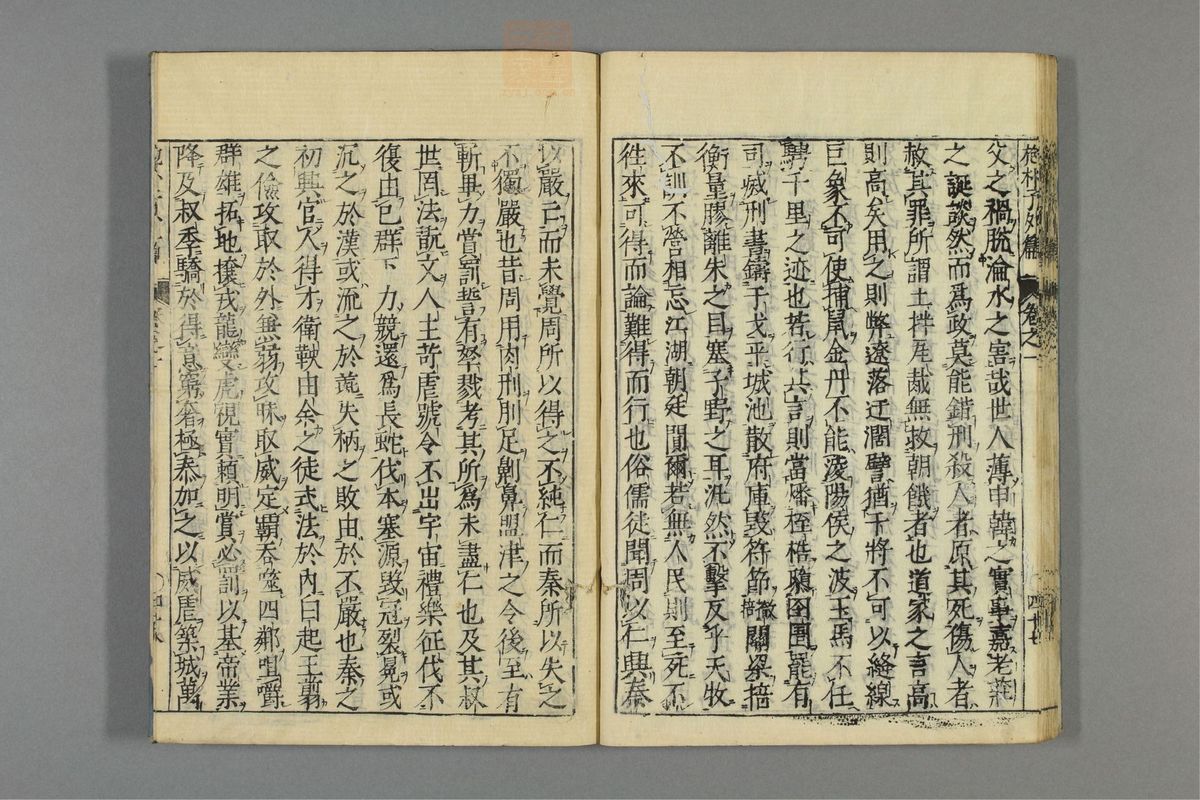 抱朴子外篇 卷之一
父之禍脫淪水之害哉世人薄申韓之實事嘉老莊
之誕談然而爲政莫能錯刑殺人者原其死傷人者
赦其罪所謂土拌瓦裁無救朝餓者也道家之言高
則高矣用之則弊遼落迂闊譬猶干將不可以縫線
巨象不可使捕鼠金丹不能凌陽侯之波玉馬不任
騁千里之迹也若行其言則當燔桎梏隳囹圄罷有
司滅刑書鑄干戈平城池散府庫毀符節關梁掊
衡量膠離朱之目塞子野之耳汎然不擊反乎天牧
不訓不營相忘江湖朝廷闃爾若無人民則至死不
徃來可得而論難得而行也俗儒徒聞周以仁興秦
以嚴亡而未覺周所以得之不純仁而秦所以失之
不獨嚴也昔周用肉刑刖足劓鼻盟津之令後至有
斬畢力賞罰誓有孥戮考其所爲未盡仁也及其叔
世罔法翫文人主苛虐號令不出宇宙禮樂征伐不
復由己群下力競還爲長蛇伐本塞源毀冠裂冕或
沉之於漢或流之於彘失柄之敗由於不嚴也秦之
初興官人得才衛鞅由余之徒式法於內白起王翦
之儔攻取於外兼弱攻昧取威定霸吞噬四鄰咀嚼
群雄拓地攘戎龍變虎視實賴明賞必罰以基帝業
降及叔季驕於得意窮奢極泰加之以威虐築城萬